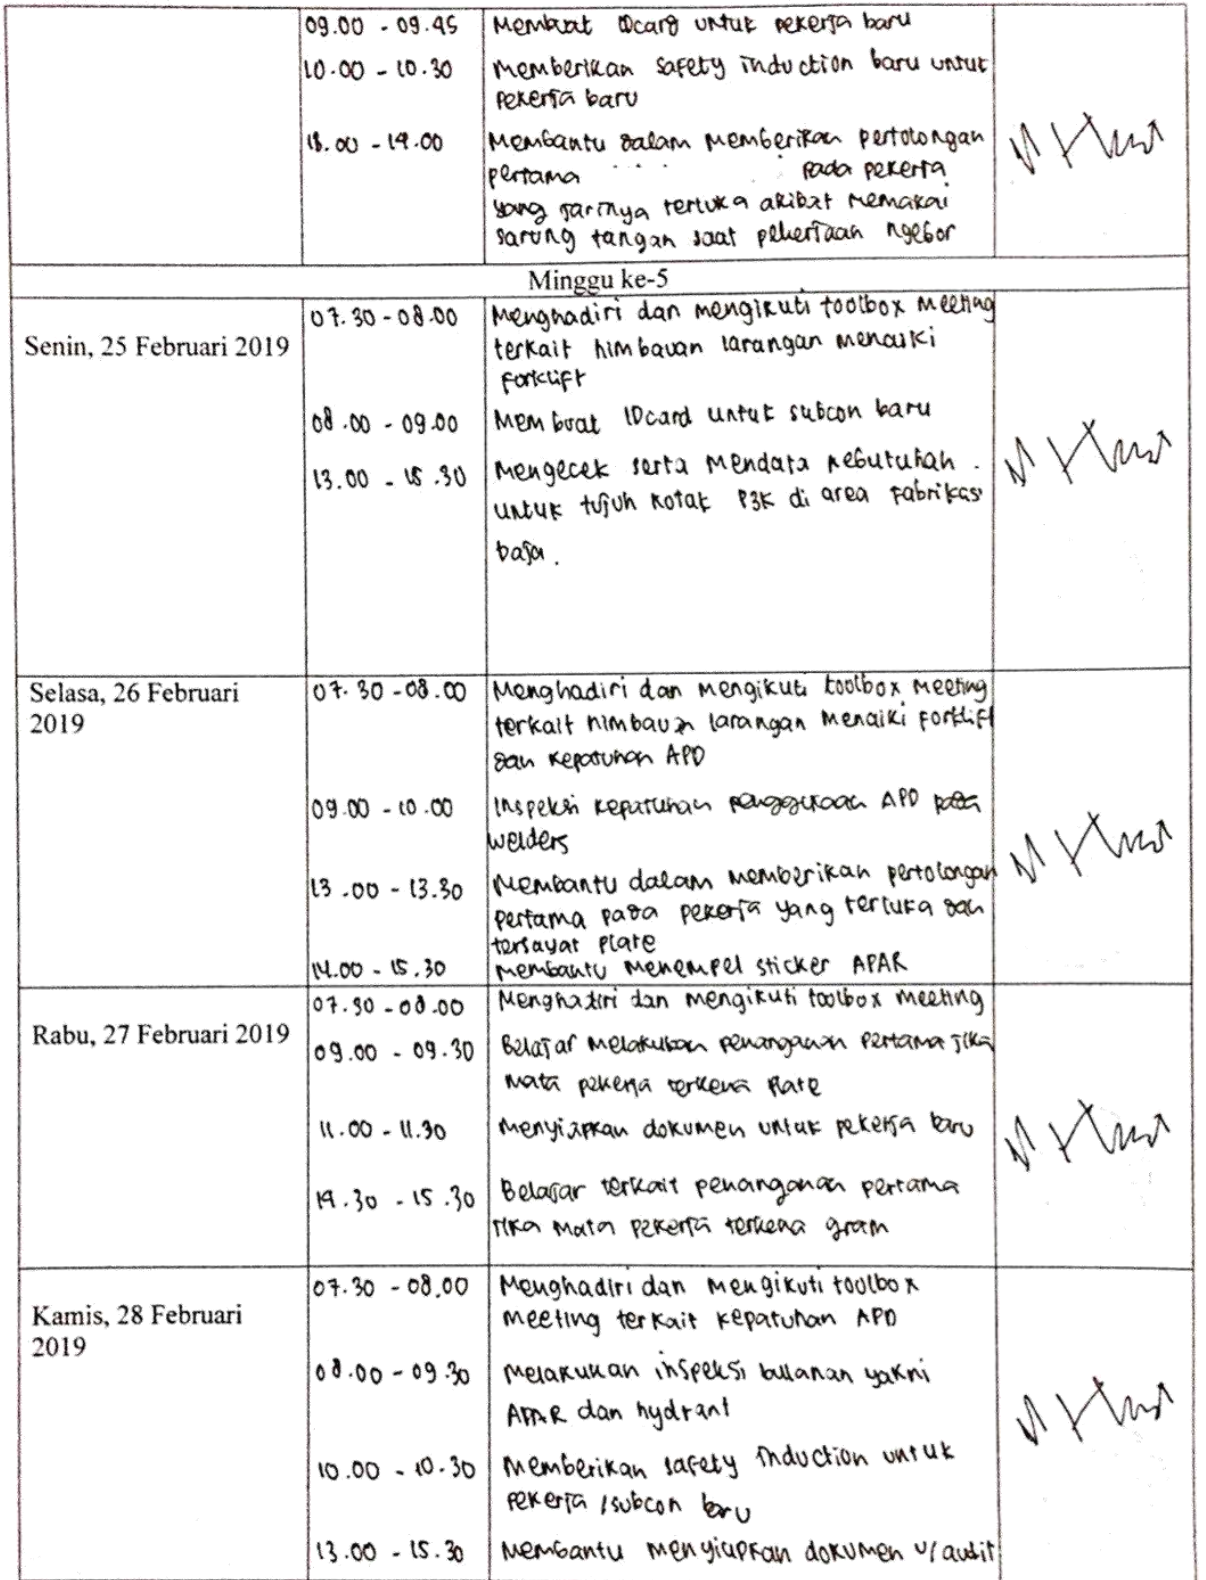 09.00 - 09.45 Membuat IDcard untuk pekerja baru
10.00 - 10.30 Memberikan safety induction baru untuk
pekerja baru
13.00 - 14.00 Membantu dalam memberikan pertolongan
pertama pada pekerja
yang jarinya terluka akibat memakai
sarung tangan saat pekerjaan ngebor
Minggu ke-5
Senin, 25 Februari 2019
07.30 - 08.00 Menghadiri dan mengikuti toolbox meeting
terkait himbauan larangan menaiki
forklift
08.00 - 09.00 Membuat IDcard untuk subcon baru
13.00 - 15.30 Mengecek serta mendata kebutuhan
untuk tujuh kotak P3K di area fabrikasi
baja.
Selasa, 26 Februari
2019
07.30 - 08.00 Menghadiri dan mengikuti toolbox meeting
terkait himbauan larangan menaiki forklift
dan kepatuhan APD
09.00 - 10.00 Inspeksi kepatuhan penggunaan APD pada
welders
13.00 - 13.30 Membantu dalam memberikan pertolongan
pertama pada pekerja yang terluka dan
tersayat plate
14.00 - 15.30 membantu menempel sticker APAR
Rabu, 27 Februari 2019
07.30 - 08.00 Menghadiri dan mengikuti toolbox meeting
09.00 - 09.30 Belajar melakukan penanganan pertama jika
mata pekerja terkena plate
11.00 - 11.30 Menyiapkan dokumen untuk pekerja baru
14.30 - 15.30 Belajar terkait penanganan pertama
jika mata pekerja terkena gram
Kamis, 28 Februari
2019
07.30 - 08.00 Menghadiri dan mengikuti toolbox
meeting terkait kepatuhan APD
08.00 - 09.30 Melakukan inspeksi bulanan yakni
APAR dan hydrant
10.00 - 10.30 Memberikan safety induction untuk
pekerja /subcon baru
13.00 - 15.30 Membantu menyiapkan dokumen u/ audit